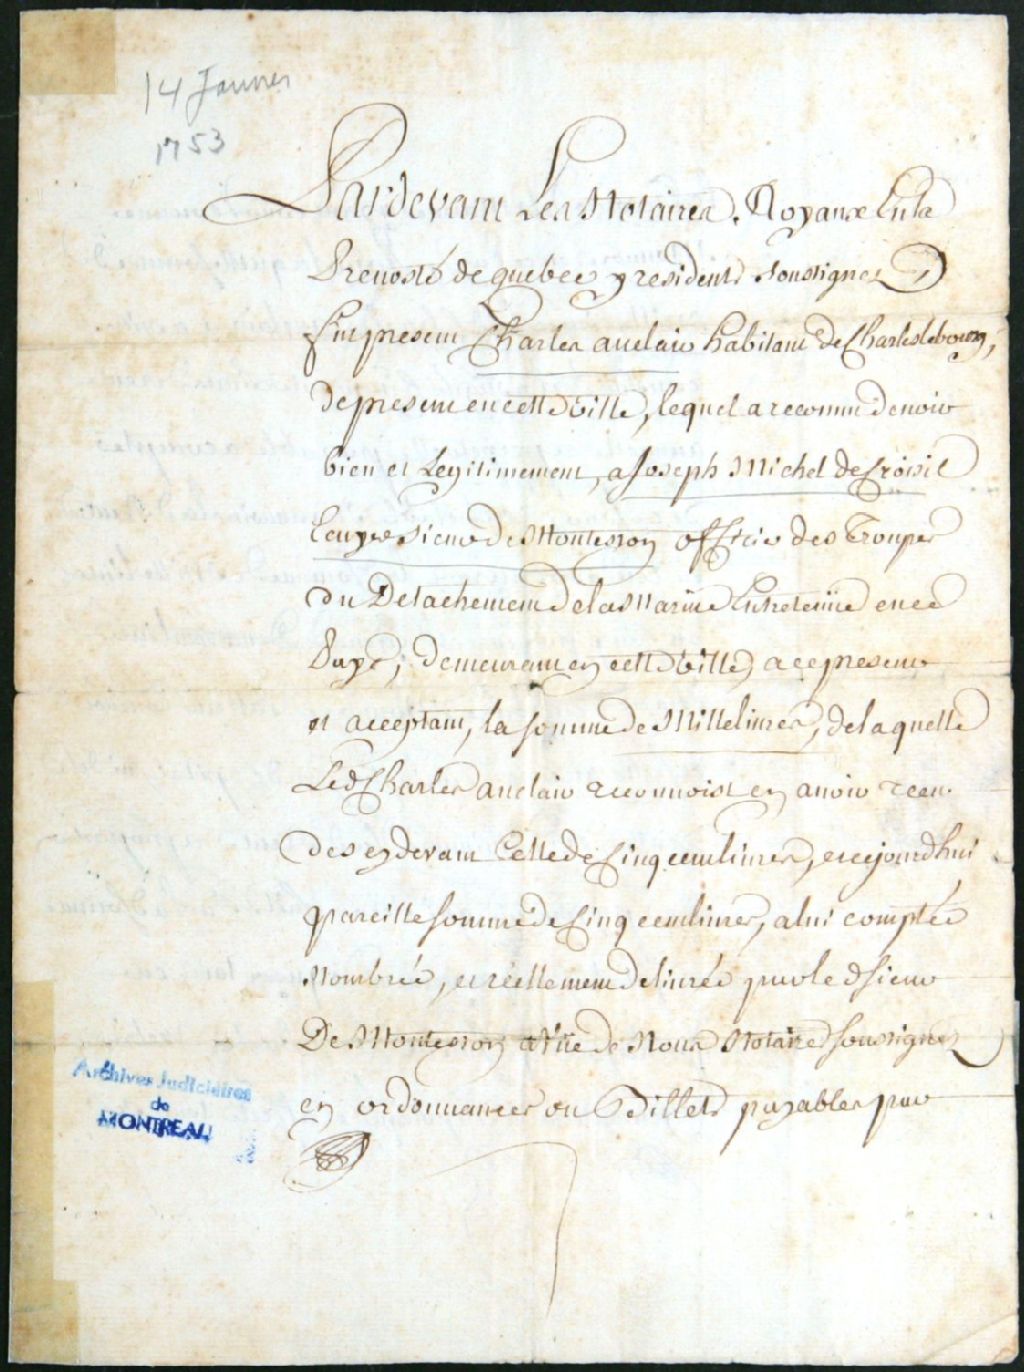 14 Janvier
1753
Pardevant Les Notaires Royaux En la
Prevosté de quebec y residents soussignes
fut present Charles auclair habitant de Charlesbourg,
de present en cette ville, lequel a reconnu devoir
bien et Legitimement, a Joseph Michel de Croisil
Ecuyer Sieur de Montesson officier des Troupes
du Detachement de la Marine Entretenüe en ce
Pays, demeurant en cette ville, a ce present
et acceptant, la somme de Mille livres, de laquelle
Led Charles auclair reconnoist en avoir receu
des cy devant Celle de Cinq cent livres, et cejourdhui
pareille somme de Cinq cent livres, a lui comptée
Nombrée, et réellement delivrée par le d sieur
De Montesson a Vüe de Nous Notaires soussignes
en ordonnances ou Billets payables par
Archives Judiciaires
de
MONTREAL